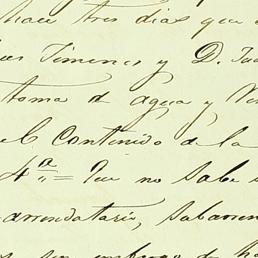 hace tres dias que
Jimenes y D.
toma de agua y
el Contenido de la
4ª = Que no sabe
arrendatario, subarren
sin embargo de ha